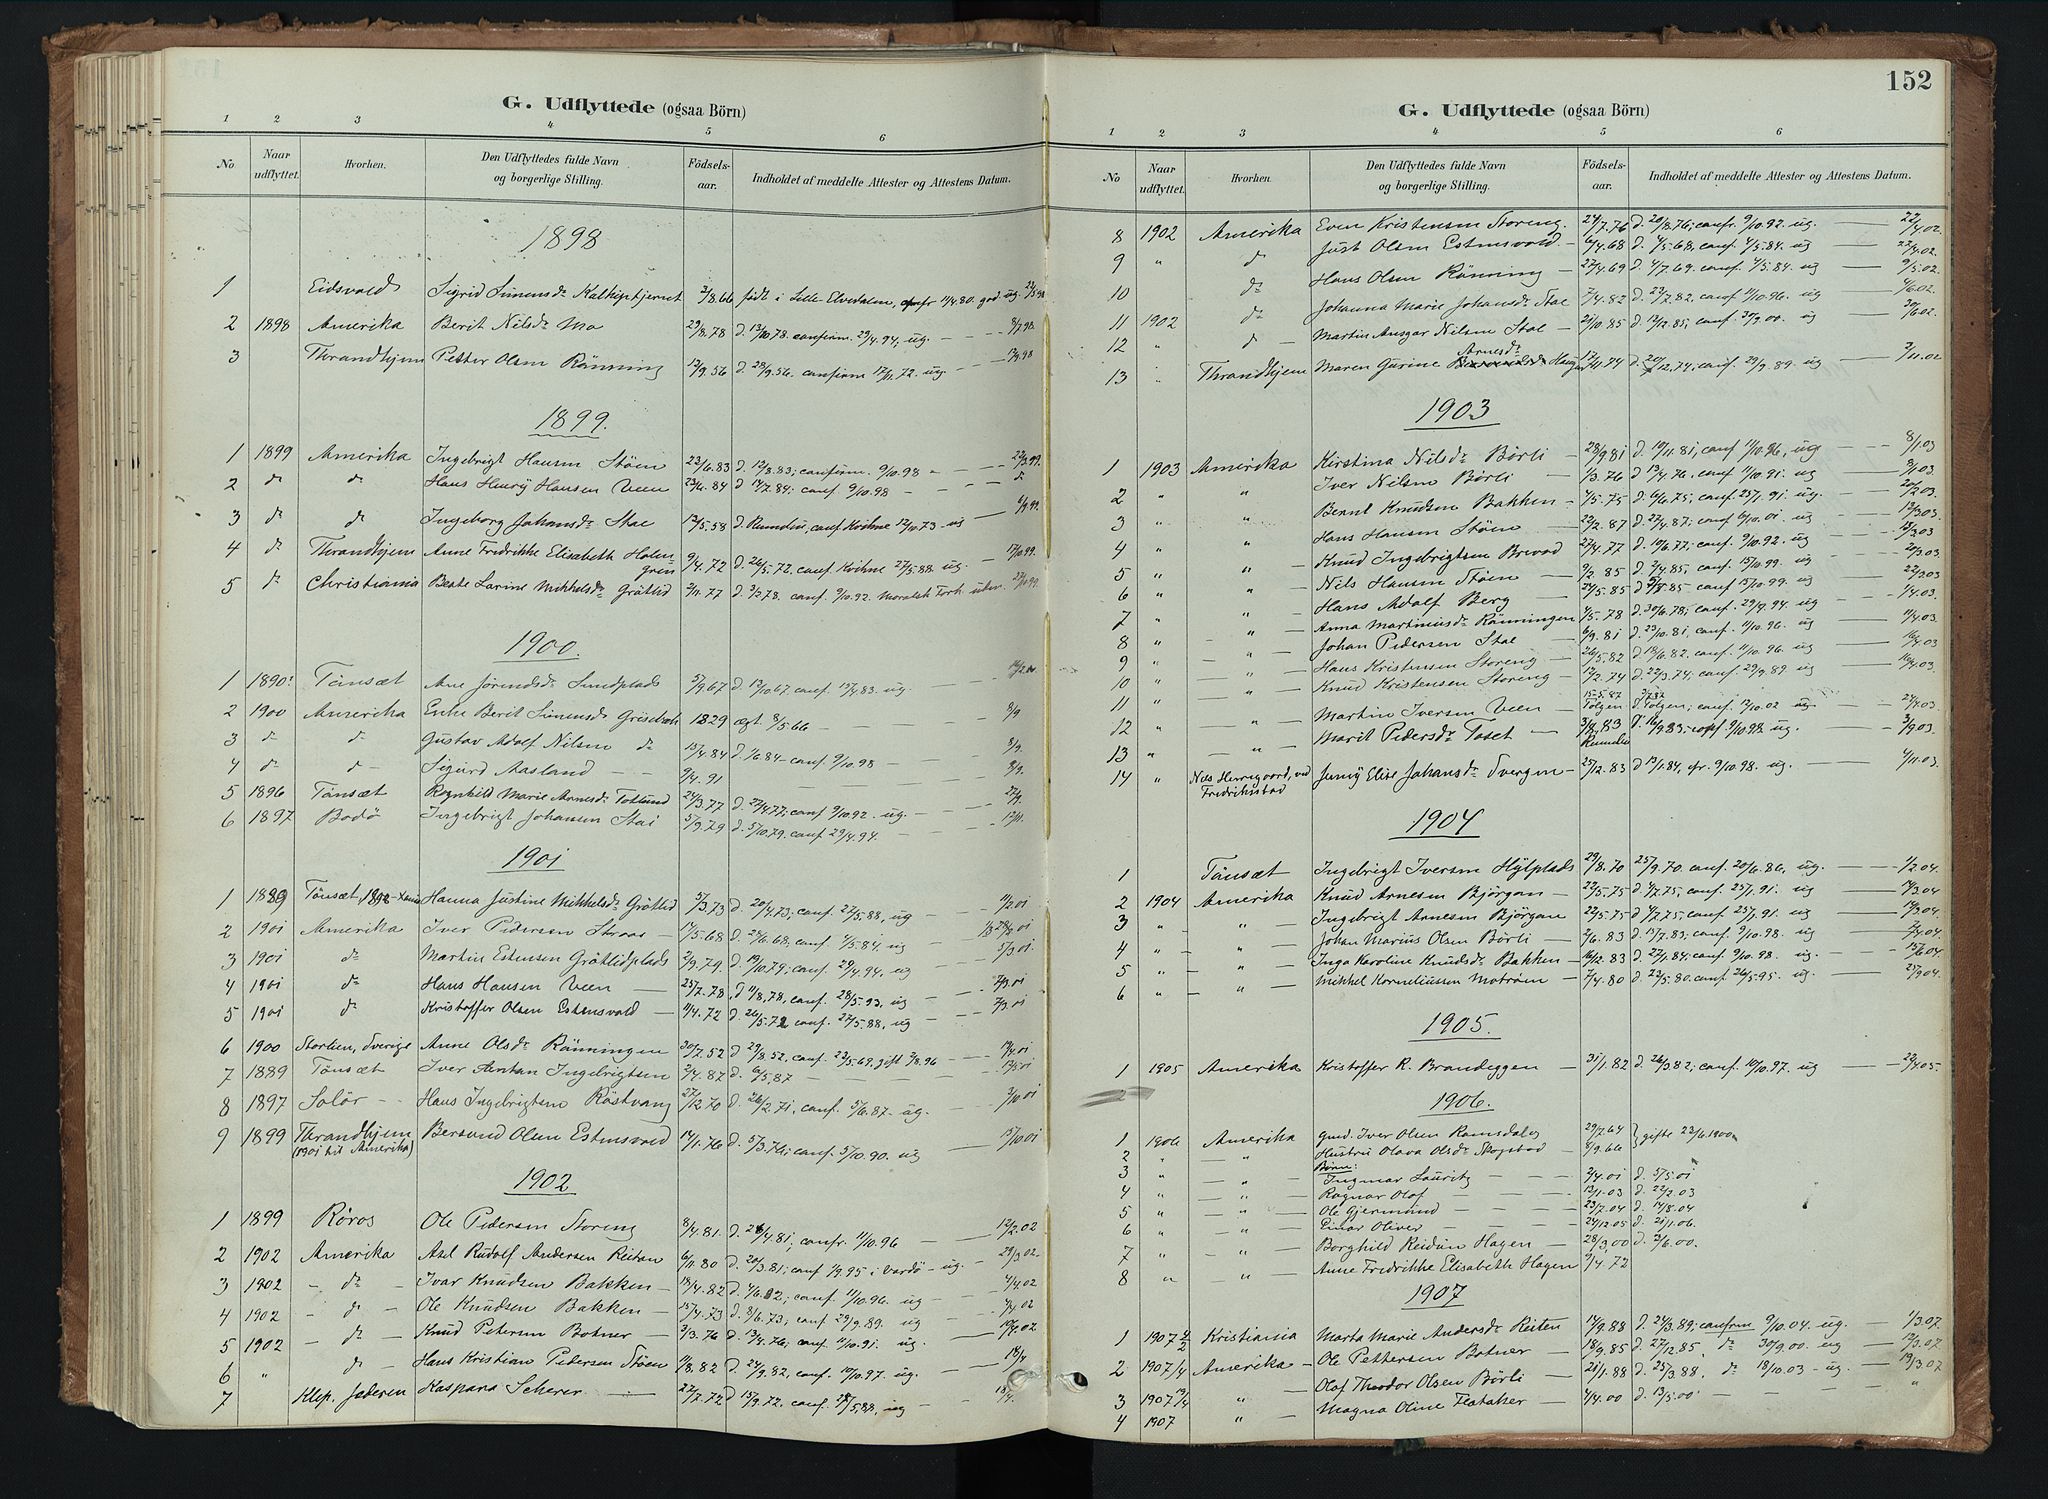 G. Udflyttede (ogsaa Börn)
1 2 3 4 5 6
No Naar udflyttet. Hvorhen. Den Udflyttedes fulde Navn og borgerlige Stilling. Födsels-aar. Indholdet af meddelte Attester og Attestens Datum.
1898
1 Eidsvold Sigrid Simensdr 2/8.66 født i Lille-Elvedalen,
2 1898 Amerika Berit Nilsdr Mo 29/8.78 d. 13/10.78 confirm. 29/4.94, ug. 8/7.98
3 Thrandhjem Petter Olsen Rönning 12/9.56 d. 28/9.56. confirm 17/11.72. ug.
1899.
1 1899 Amerika Ingebrigt Hansen Stöen 23/6.83 d. 12/8.83; confirm. 9/10.98
2 dr dr Hans Henry Hansen Veen 23/6.84 d 14/7.84; conf. 9/10.98 dr
3 dr dr Ingeborg Johansdr Stae 13/5.58 conf. Kvikne 12/10.73 ug
4 dr Thrandhjem Anne Fredrikke Elisabeth Holmgren 9/4.72 d. 26/5.72. conf. Kvikne 27/5.88. ug. 17/10.99.
5 dr Christiania Beate Larine Mikkelsdr Gröttid 2/11.77 d. 3/2.78. conf. 9/10.92.
1900.
1 1890 Tönsæt Ane 5/9.67 d. 13/10.67, conf. 15/4.83. ug.
2 1900 Amerika Enke Berit Simensdr 1829 ægt. 8/5.66 8/9
3 dr dr Gustav Adolf Nilsen dr 15/4.84 d. 1/6.84 conf. 9/10.98 8/9.
4 dr dr Sigurd Aasland 9/4.91 8/9.
5 1896 Tönsæt Ragnhild Marie Arnesdr 24/3.77 d. 22/4.77; conf. 9/10.92. ug.
6 1897 Bodö Ingebrigt Johansen Stai 5/9.79 d. 5/10.79. conf. 29/4.94.
1901
1 1889 Tönsæt, Hanna Justine Mikkelsdr Gröttid 3/3.73 d. 20/4.73; conf. 27/5.88, ug
2 1901 Amerika Iver Pedersen 14/5.68 d. 24/6.68, conf. 4/5.84, ug
3 1901 dr Martin Estensen Gröttidplads 2/9.79. d. 19/10.79; conf. 29/4.94, ug 5/3.01
4 1901 dr Hans Hansen Veen 25/7.78, d 11/8.78, conf. 28/5.93, ug 7/3.01
5 1901 dr Kristoffer Olsen Estensvold 11/4.72 d. 26/5.72 conf. 27/5.88, ug 7/3.01
6 1900 Storlien, Sverige Anne Olsdr Rönningen 30/7.52 d. 29/8.52, conf. 23/5.69, gift 3/8.96
7 1889 Tönsæt Iver Anton Ingebrigtsen 2/4.87 d. 6/5.87
8 1897 Solör Hans Ingebrigtsen Röstvang 27/12.70 d. 26/2.71, conf. 5/6.87. ug. 3/10.01
9 1899 Thrandhjem (1901 til Amerika) Bersvend Olsen Estensvold 14/1.76 d. 5/3.76; conf. 5/10.90. ug 15/10.01
1902
1 1899 Röros Ole Pedersen Storeng 8/4.81 d. 26/4.81; confr. 11/10.96 12/2.02
2 1902 Amerika Axel Rudolf Andersen Reitan 6/11.80 d. 20/3.81; conf. 1/9.95 i Vardö - ug. 29/3.02
3 1902 dr Ivar Knudsen Bakken 18/4.82 d. 4/6.82; conf. 11/10.96. ug 4/4.02
4 1902 dr Ole Knudsen Bakken 15/4.73 d. 8/6.73; conf 29/9.89. ug 4/4.02
5 1902 dr Knud Petersen Botner 3/3.76 d. 13/4.76; conf. 11/10.91. ug.
6 " dr Hans Kristian Pedersen Stöen 11/8.82 d. 24/9.82, conf. 10/10.97. ug. 18/4
7 Klep. Jæderen Kaspara Scherer 27/7.72 d 15/9.72. conf. 27/5.88, ug 18/4.
152
G. Udflyttede (ogsaa Börn)
1 2 3 4 5 6
No Naar udflyttet. Hvorhen. Den Udflyttedes fulde Navn og borgerlige Stilling. Födsels-aar. Indholdet af meddelte Attester og Attestens Datum.
8 1902 Amerika Even Kristensen Storeng 24/7.76 d. 20/8.76; confr. 9/10.92. ug. 22/4.02.
9 " dr Just Olsen Estensvold 6/4.68 d. 4/5.68, conf. 4/5.84. ug 22/4.02.
10 dr Hans Olsen Rönning 27/4.69 d. 4/7.69. conf. 4/5.84. ug 9/5.02.
11 1902 dr Johanna Marie Johansdr Stae 7/4.82 d. 23/7.82. conf 11/10.96. ug 4/6.02.
12 " dr Martin Ansgar Nilsen Stae 21/10.85 d. 13/12.85; conf. 30/9.00. ug 30/6.02.
13 " Thrandhjem Maren Gurine Arnesdr Haugen 17/11.74 d. 20/12.74; conf. 29/9.89. ug 3/11.02
1903
1 1903 Amerika Kirstina Nilsdr Börli 28/9.81 d. 19/11.81, conf 11/10.96, ug 8/1.03
2 " " Iver Nilsen Börli 1/3.76 d 13/4.76. conf. 11/10.91. ug 8/1.03.
3 " " Bernt Knudsen Bakken 4/5.75 d. 6/6.75; conf. 25/1.91. ug. 20/2.03.
4 " " Hans Hansen Stöen 22/2.87 d. 27/4.87; conf 6/10.01. ug 13/3.03.
5 " " Knud Ingebrigtsen Brevad 27/4.77 d. 10/6.77; conf. 9/10.92. ug 13/3.03
6 " " Nils Hansen Stöen 9/2.85 d. 2/4.85, conf 15/10.99. ug 20/3.03
7 " " Hans Adolf Berg 24/5.85 conf 15/10.99. ug 22/3.03
8 " " Anna Martinusdr Rönningen 4/5.78 d. 30/6.78; conf. 29/4.94. ug 1/4.03.
9 " " Johan Pedersen Stae 6/9.81 d. 23/10.81, conf. 11/10.96. ug 11/4.03
10 " " Hans Kristensen Storeng 26/5.82 d 18/6.82. conf. 11/10.96. ug 16/4.03
11 " " Knud Kristensen Storeng 12/2.74 d 22/3.74; conf 29/9.89 ug 16/4.03.
12 " " Martin Iversen Veen 15.5.87 Tolgen Tolgen; conf. 12/10.02 ug 24/4.03.
13 " " Marit Pedersdr Toset 3/8.83 d. 16/9.83; conf 9/10.98 ug. 3/9.03.
14 " Næs Herregaard, ved Fredriksstad Jenny Elise Johansdr Svergen 25/12.83 d 13/1.84, cfr. 9/10.98. ug. 4/11.03.
1904
1 Tönsæt Ingebrigt Iversen Hylplads 29/8.70 25/9.70. conf. 20/6.86, ug. 1/2.04.
2 1904 Amerika Knud Arnesen Bjørgan 22/5.75 d. 4/7.75, conf. 25/1.91. ug
3 " " Ingebrigt Arnesen Bjørgan 22/5.75 d 4/7.75, conf 25/1.91. ug
4 " " Johan Marius Olsen Börli 2/6.83 d. 15/7.83; conf. 9/10.98. ug 2/4.04.
5 " " Inga Karoline Knudsdr Bakken 16/12.83 d. 27/1.84; conf. 9/10.98. ug 15/6.04.
6 " " Mikkel Korneliussen Moström 7/4.80 d. 23/5.80. conf. 26/5.95. ug. 25/9.04
1905.
1 1905 Amerika Kristoffer R. Brandeggen 31/1.82 d. 26/3.82; conf. 10/10.97. ug 22/4.05.
1906.
1 1906 Amerika gmd. Iver Olsen Ramsdalen 29/7.64
2 " " Hustru Olava Olsdr Skogstad 8/9.66 } gifte 23/6.1900
Børn:
3 " " Ingmar Lauritz 2/4.01 d. 5/5.01
4 " " Ragnar Olof 13/1.03 d. 22/2.03
5 " " Ole Gjermund 23/7.04 d. 14/8.04
6 " " Einar Oliver 24/12.05 d. 21/1.06.
7 " " Borghild Reidun Hagen 28/3.00 d. 3/6.00.
8 " " Anne Fredrikke Elisabeth Hagen 9/4.72
1907
1 1907 2/2 Kristiania Marta Marie Andersdr Reiten 14/9.88 d. 24/3.89; confirm 9/10.04. ug. 1/3.07.
2 1907 1/4 Amerika Ole Pettersen Botner 18/9.85 d. 27/12.85. dr 30/9.00. ug
3 1907 19/4 " Olof Theodor Olsen Börli 21/1.88 d. 25/3.88. dr 18/10.03 - ug. 19/3.07
4 1907 " Magna Oline Flataker 4/4.00 d. 13/5.00 "